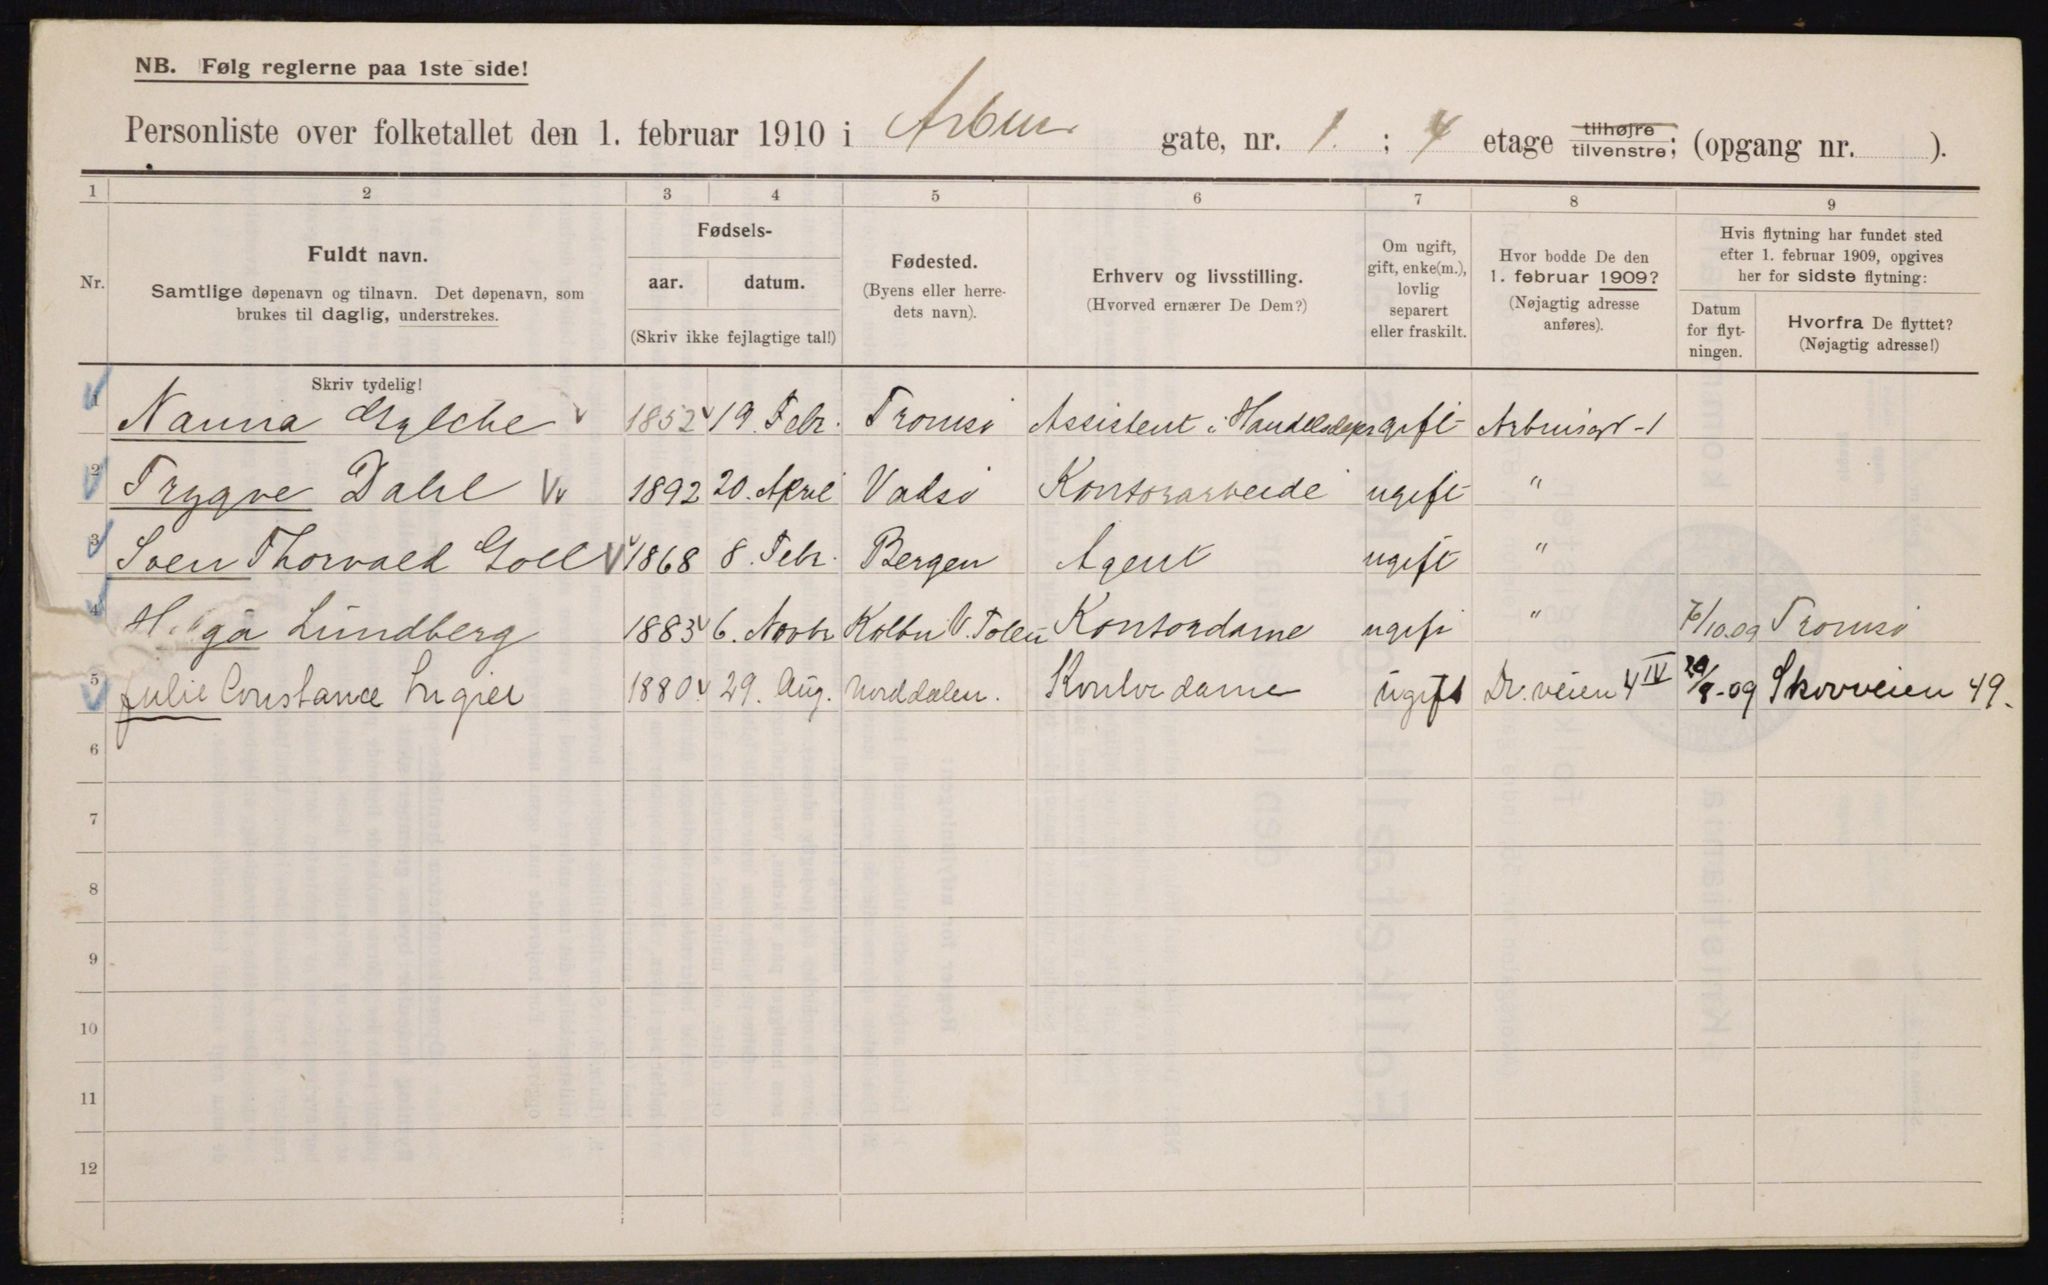 NB. Følg reglerne paa 1ste side!
Personliste over folketallet den 1. februar 1910 i Arbins gate, nr. 1. ; 4 etage tilhøjre tilvenstre; (opgang nr. ).
1 2 3 4 5 6 7 8 9
Nr.
Fuldt navn.
Samtlige døpenavn og tilnavn. Det døpenavn, som
brukes til daglig, understrekes.
Skriv tydelig!
Fødsels-
aar. datum.
(Skriv ikke fejlagtige tal!)
Fødested.
(Byens eller herre-
dets navn).
Erhverv og livsstilling.
(Hvorved ernærer De Dem?)
Om ugift,
gift, enke(m.),
lovlig
separert
eller fraskilt.
Hvor bodde De den
1. februar 1909?
(Nøjagtig adresse
anføres).
Hvis flytning har fundet sted
efter 1. februar 1909, opgives
her for sidste flytning:
Datum
for flyt-
ningen.
Hvorfra De flyttet?
(Nøjagtig adresse!)
1 Nanna 1852 19. Febr. Tromsø Assistent i gift Arbinsgt - 1
2 Trygve Dahl 1892 20. April Vadsø Kontorarbeide ugift "
3 Sven Thorvald 1868 8. Febr. Bergen Agent ugift "
4 Lundberg 1883 6. Novbr Kolbu V. Toten Kontordame ugift " /10.09 Tromsø
5 Julie Constance Lngier 1880. 29. Aug. Norddalen. Kontordame ugift Dr. veien 4 IV 20/8-09 Skovveien 49.
6
7
8
9
10
11
12